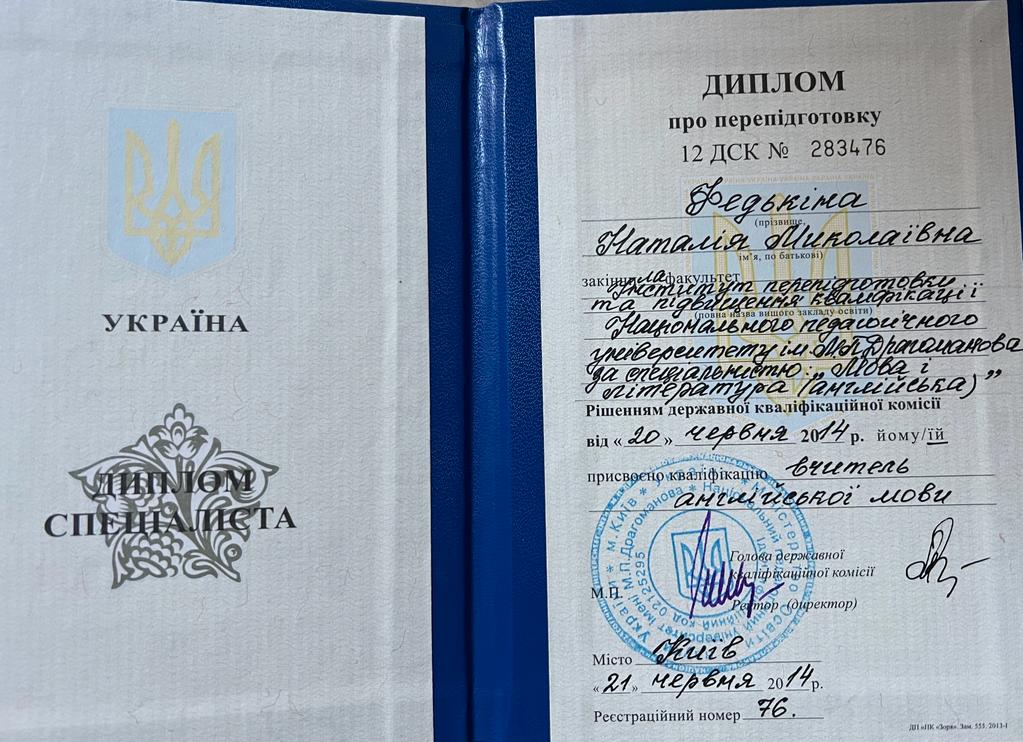 УКРАЇНА
ДИПЛОМ
СПЕЦІАЛІСТА
ДИПЛОМ
про перепідготовку
12 ДСК № 283476
Федькіна
(прізвище,
Наталія Миколаївна
ім'я, по батькові)
закінчила факультет
Інститут перепідготовки
та підвищення кваліфікації
(повна назва вищого закладу освіти)
Національного педагогічного
університету ім. М.П.Драгоманова
за спеціальністю: „Мова і
література (англійська)”
Рішенням державної кваліфікаційної комісії
від « 20 » червня 2014 р. йому/їй
присвоєно кваліфікацію вчитель
англійської мови
Голова державної
кваліфікаційної комісії
М.П.
Ректор (директор)
Місто Київ
« 21 » червня 2014 р.
Реєстраційний номер 76.
ДП «ПК «Зоря». Зам. 555. 2013-І